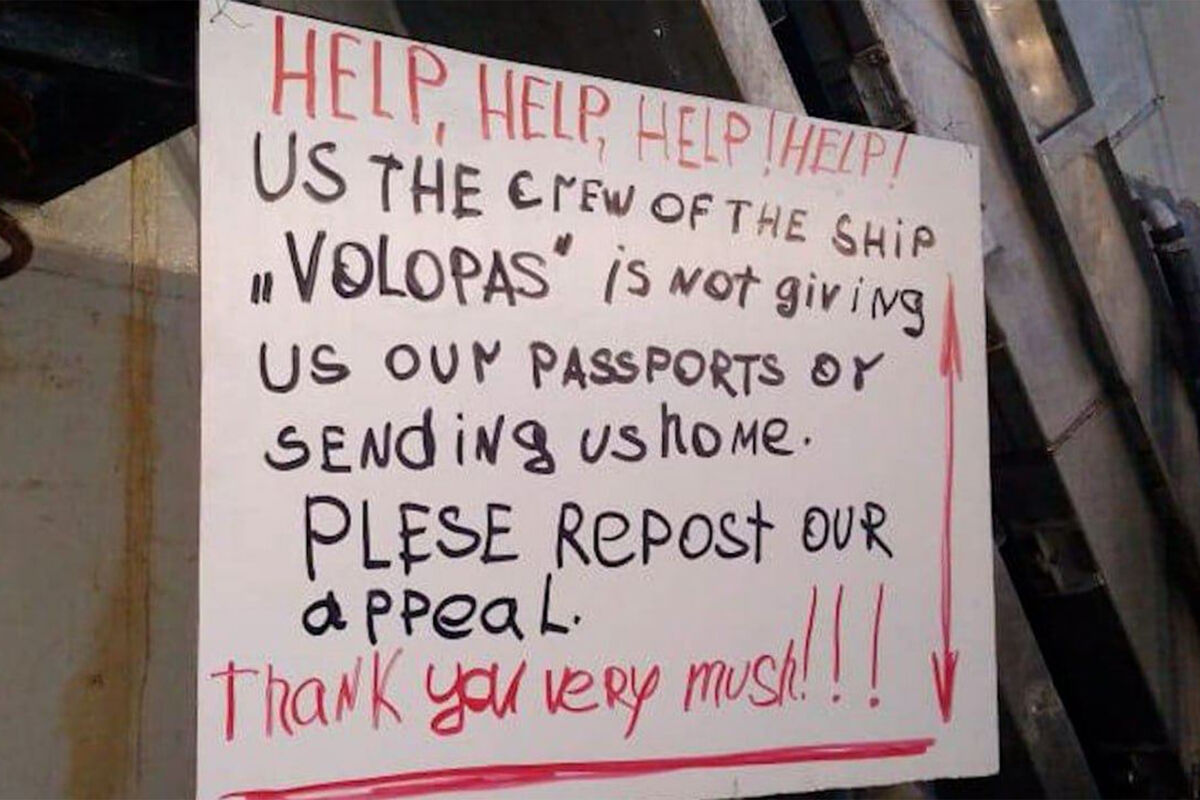 HELP, HELP, HELP! HELP!
US THE CrEW OF THE SHiP
„VOLOPAS" iS NOt giviNg
US OUr PASSPORTS Or
SENdiNg US hOME.
PLESE RePOSt OUR
aPPeaL.
ThaNK you veRy mush!!!!